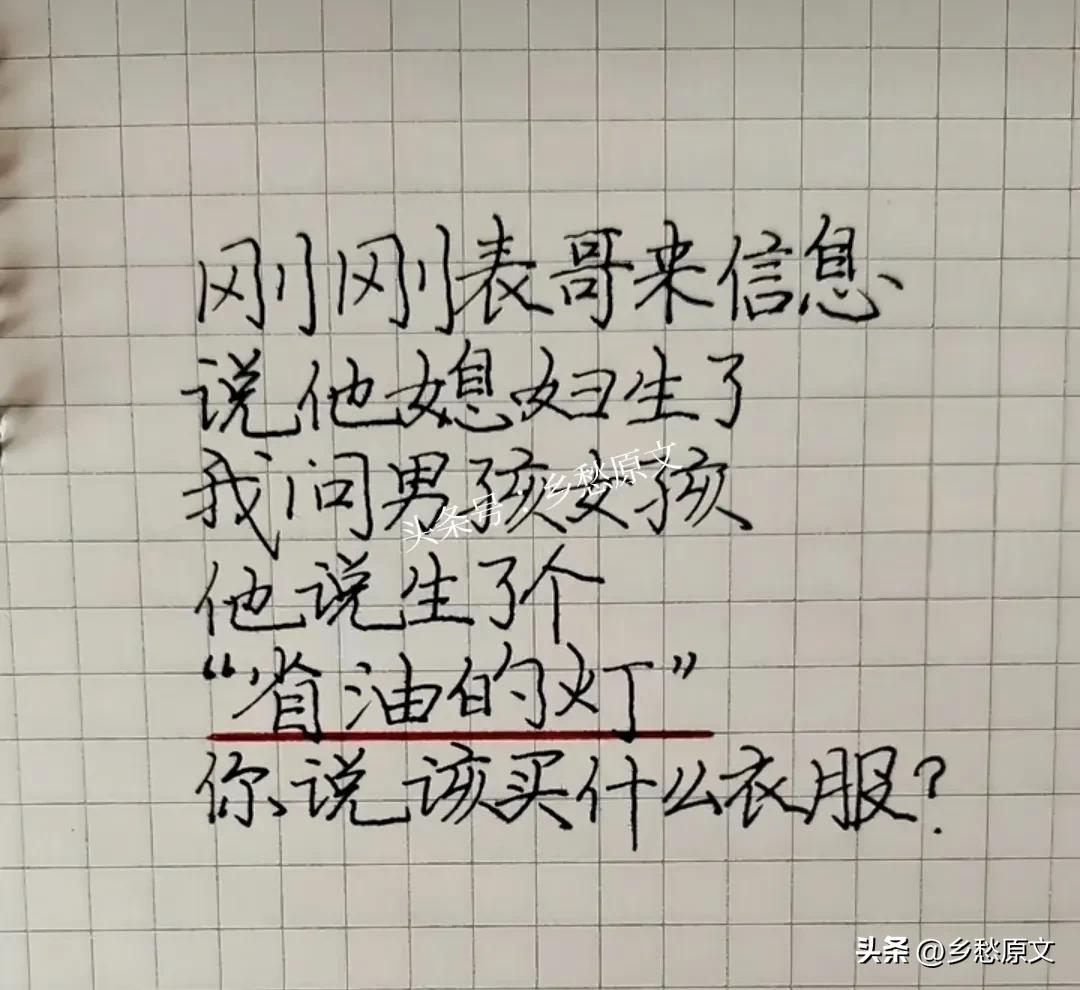 刚刚表哥来信息
说他媳妇生了
我问男孩女孩
头条号：乡愁原文
他说生了个
“省油的灯”
你说该买什么衣服？
头条 @乡愁原文